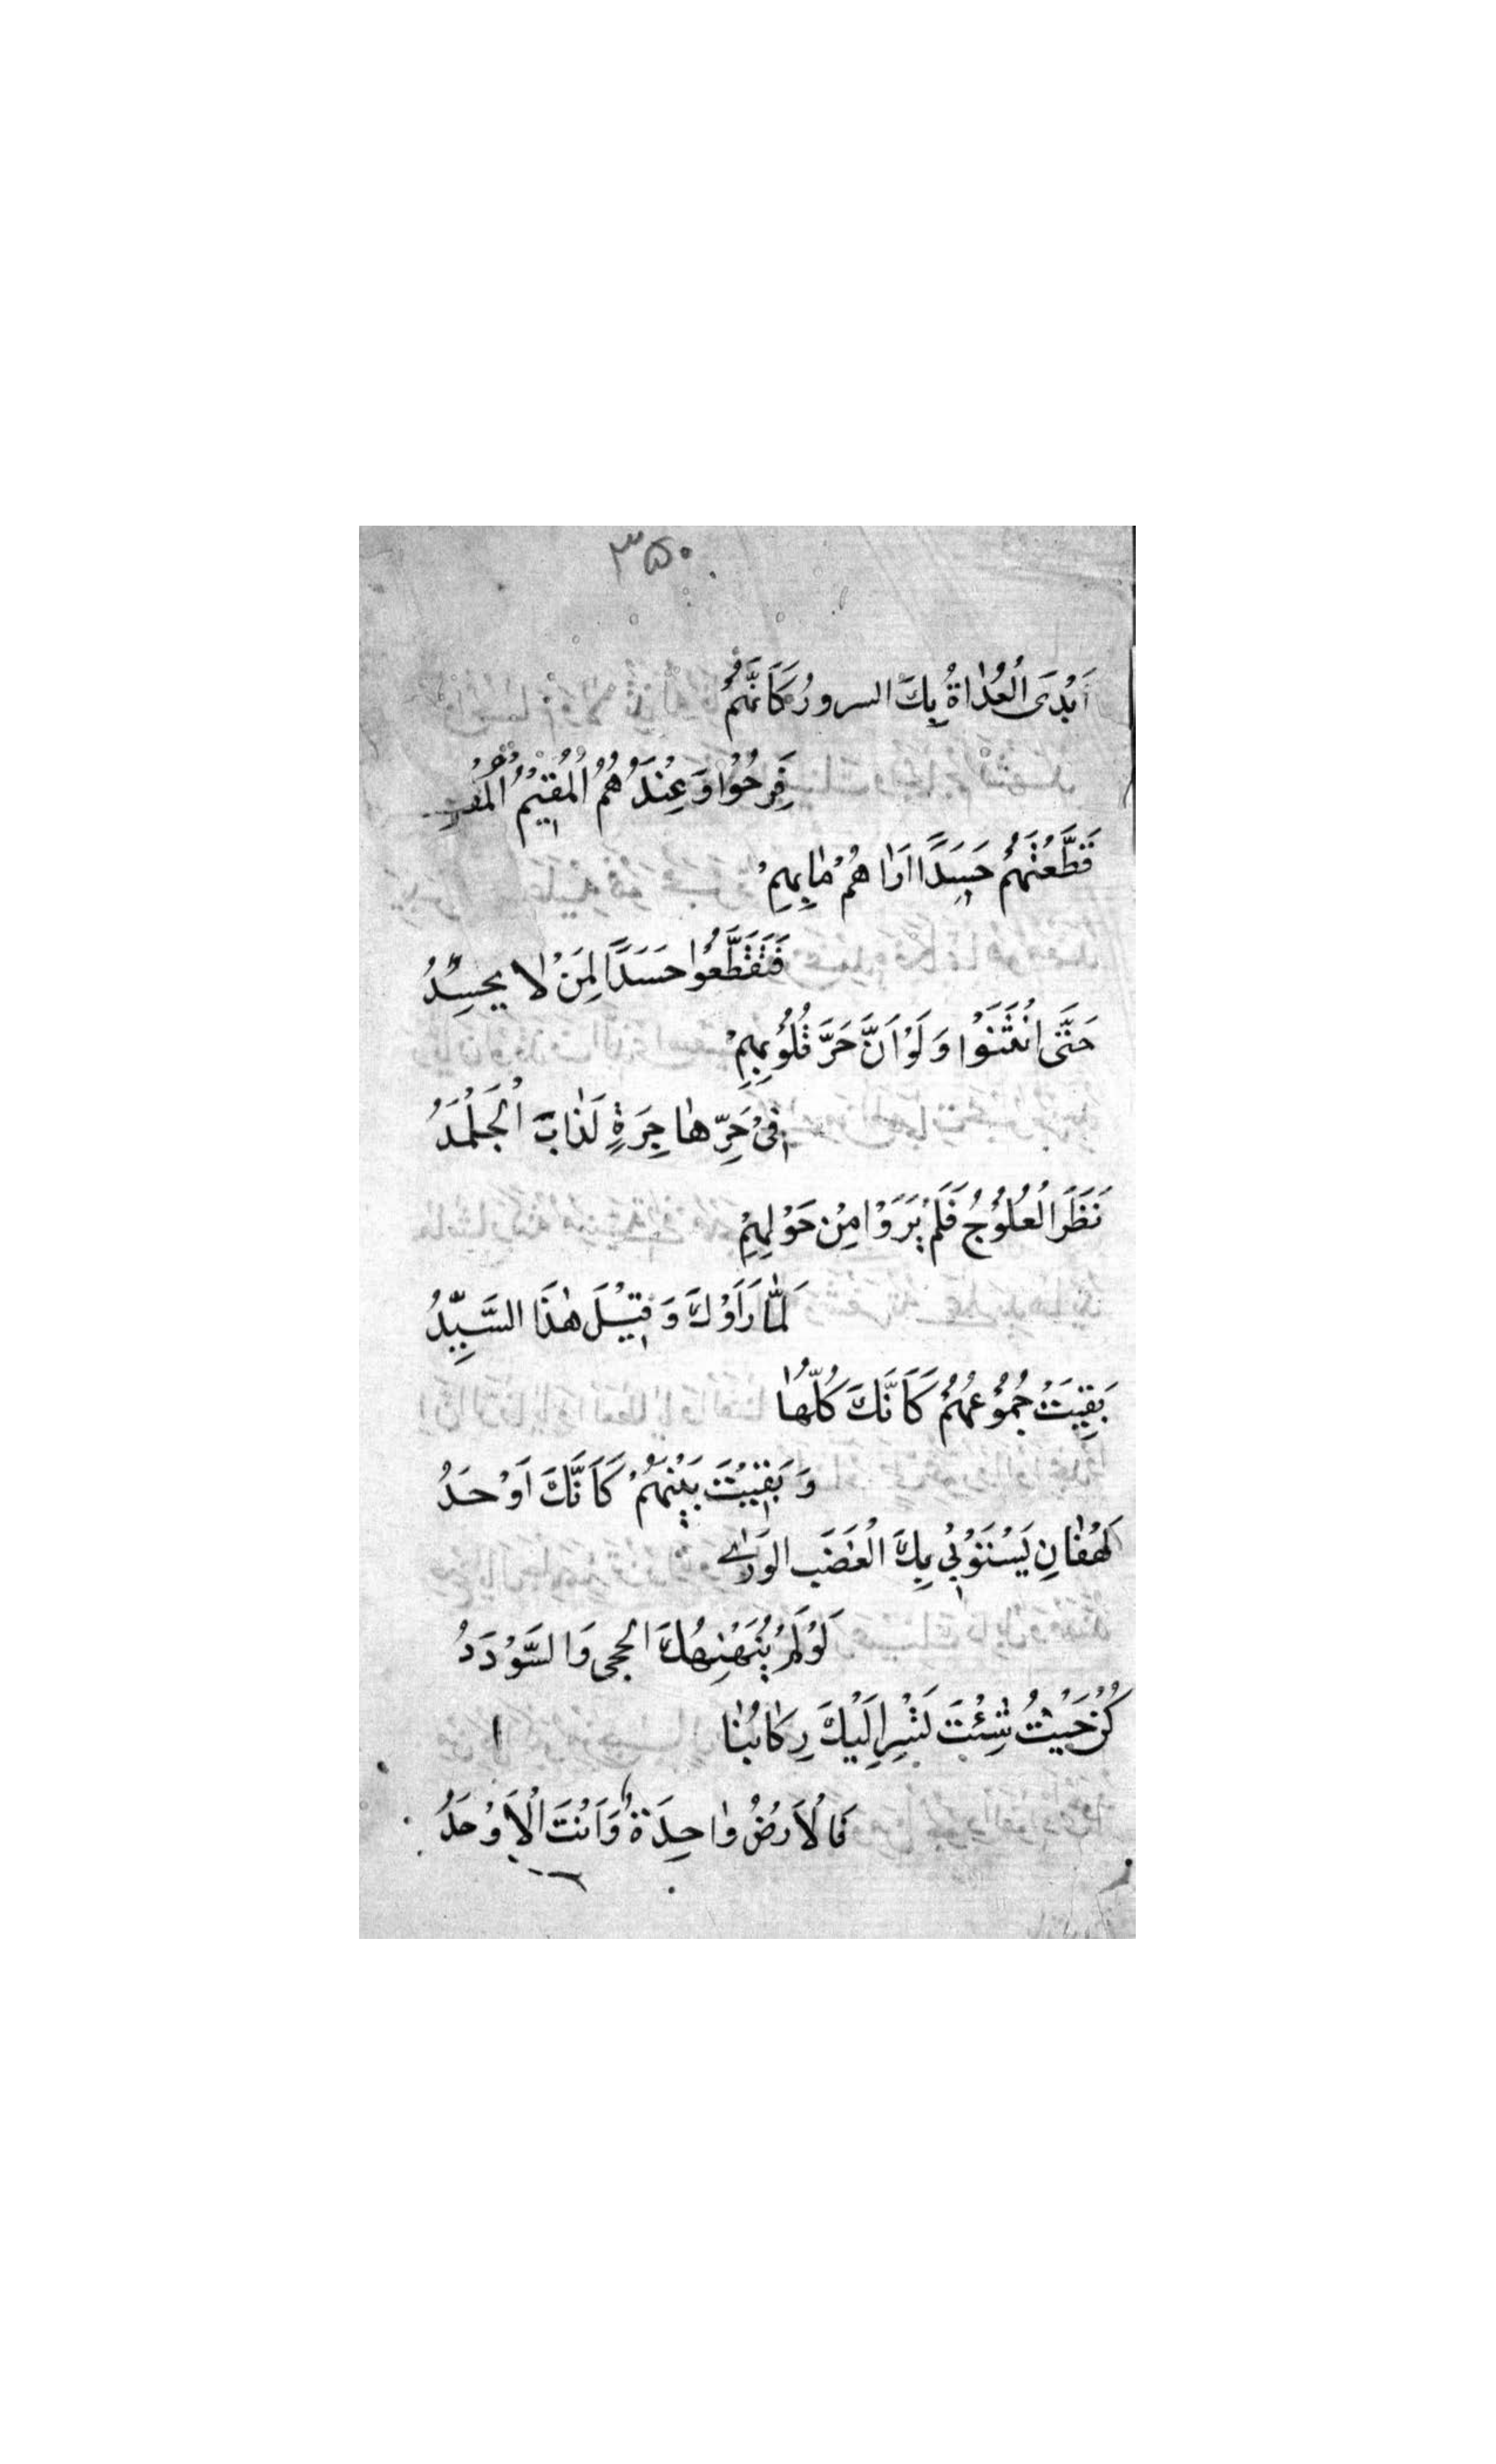 ٣٥٠
اَبْدَى الْعُدٰاةُ بِكَ السرورُ كَاَنَّهُمْ
فَرِحُوْا وَعِنْدَهُمُ الْمُقِيْمُ الْمُقْ
قَطَّعْتَهُمْ حَسَدًا اَرٰاهُمْ مٰا بِهِمْ
فَتَقَطَّعُوْا حَسَدًا لِمَنْ لٰا يحسِدُ
حَتَّى انْثَنَوْا وَلَوْ اَنَّ حَرَّ قُلُوْبِهِمْ
فِىْ حَرِّ هٰاجِرَةٍ لَذٰابَ الْجَلْمَدُ
نَظَرَ الْعُلُوْجُ فَلَمْ يَرَوْا مِنْ حَوْلِهِمْ
لَمّٰا رَاَوْكَ وَقِيْلَ هٰذَا السَّيِّدُ
بَقِيَتْ جُمُوْعُهُمْ كَاَنَّكَ كُلُّهٰا
وَبَقِيْتَ بَيْنَهُمْ كَاَنَّكَ اَوْحَدُ
لَهْفٰانِ يَسْتَوْبِيْ بِكَ الْغَضَبَ الوَرٰى
لَوْلَمْ يُنَهْنِهْكَ الحجى وَالسَّوْدَدُ
كُنْ حَيْثُ شِئْتَ تَسْرِ اِلَيْكَ رِكٰابُنٰا
فَالْاَرْضُ وٰاحِدَةٌ وَاَنْتَ الْاَوْحَدُ